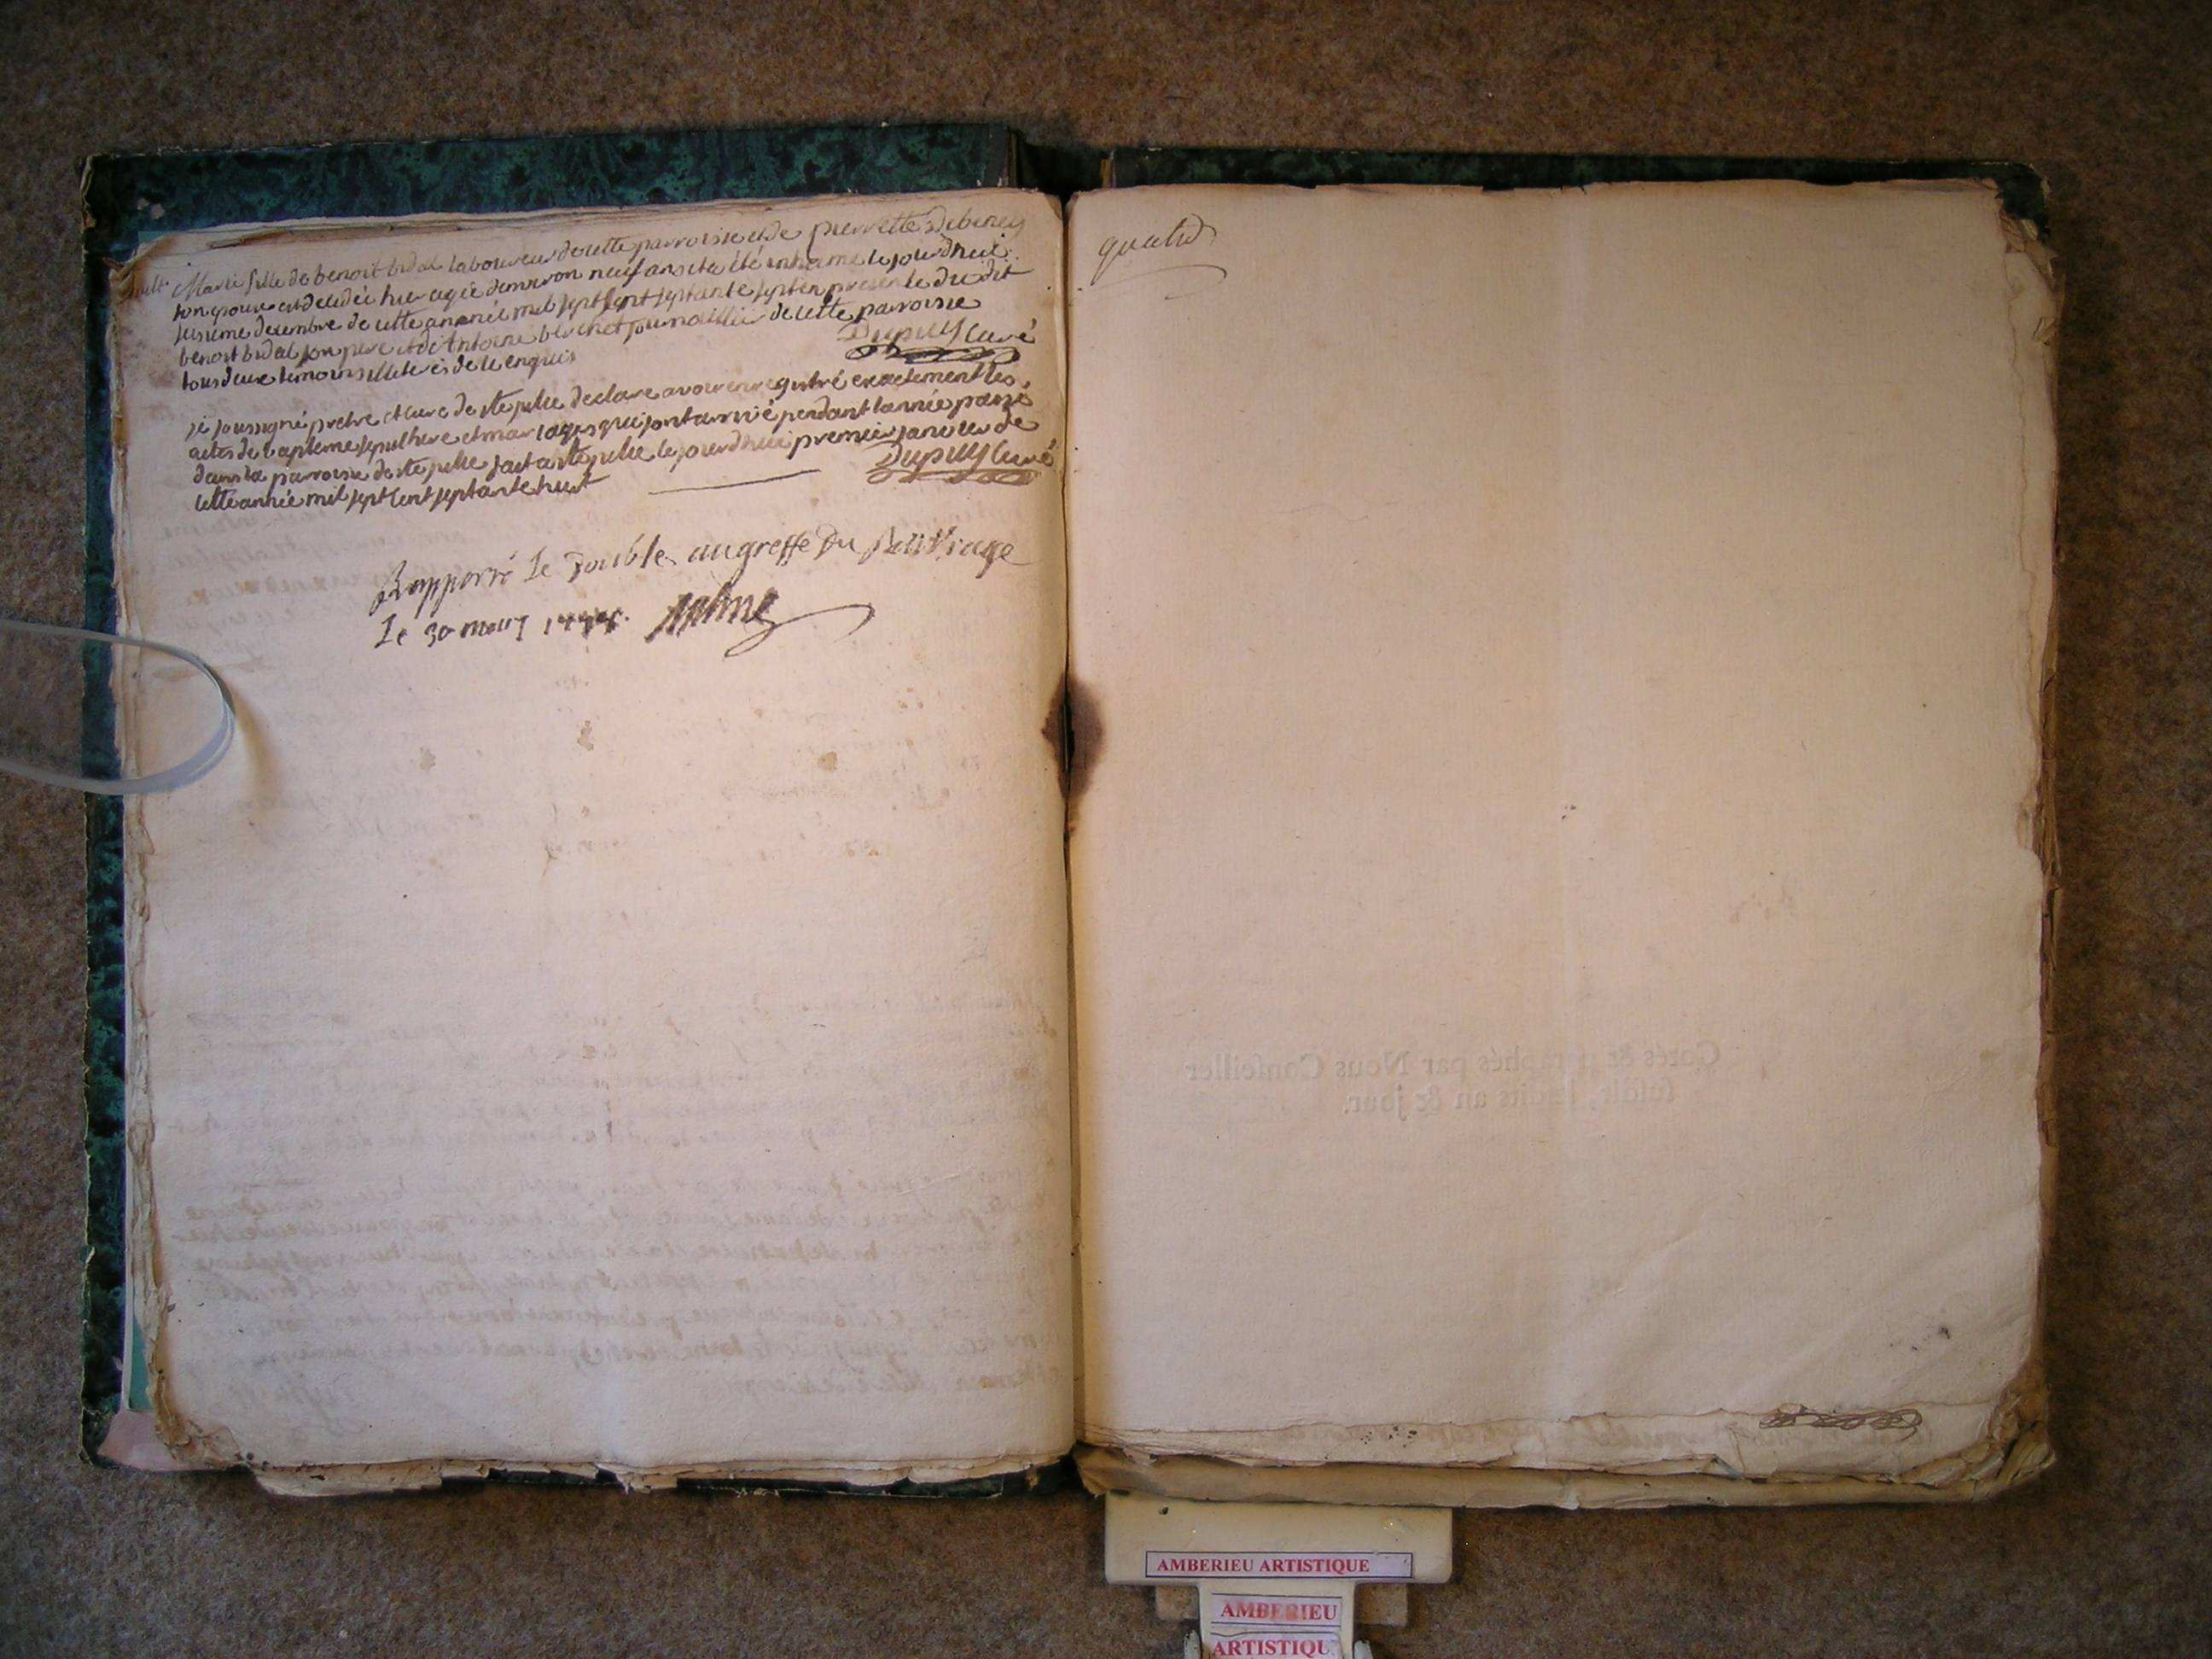 sepult. Marie fille de benoit bidal laboureur de cette parroisse et de pierrette debeney
son epouse est decedée hier agée denviron neuf ans et a été inhumé le jourdhuit
seisieme decembre de cette année mil sept cent septante sept en presence du dit
benoit bidal son pere et de Antoine berchet journaillier de cette parroisse
tous deux temoins illiterés de ce enquis Dupuy curé
je soussigné pretre et curé de ste julie declare avoir enregistré exactement les
actes de bapteme sepulture et mariages qui sont arrivé pendant lannée passé
dans la parroisse de ste julie fait a ste julie le jourdhuit premier janvier de
cette année mil sept cent septante huit Dupuy curé
Rapporté Le Double au greffe Du Bailliage
Le 30 mars
quatre
Cotés & paraphés par Nous Conseiller
susdit, lesdits an & jour.
AMBERIEU ARTISTIQUE
AMBERIEU
ARTISTIQU